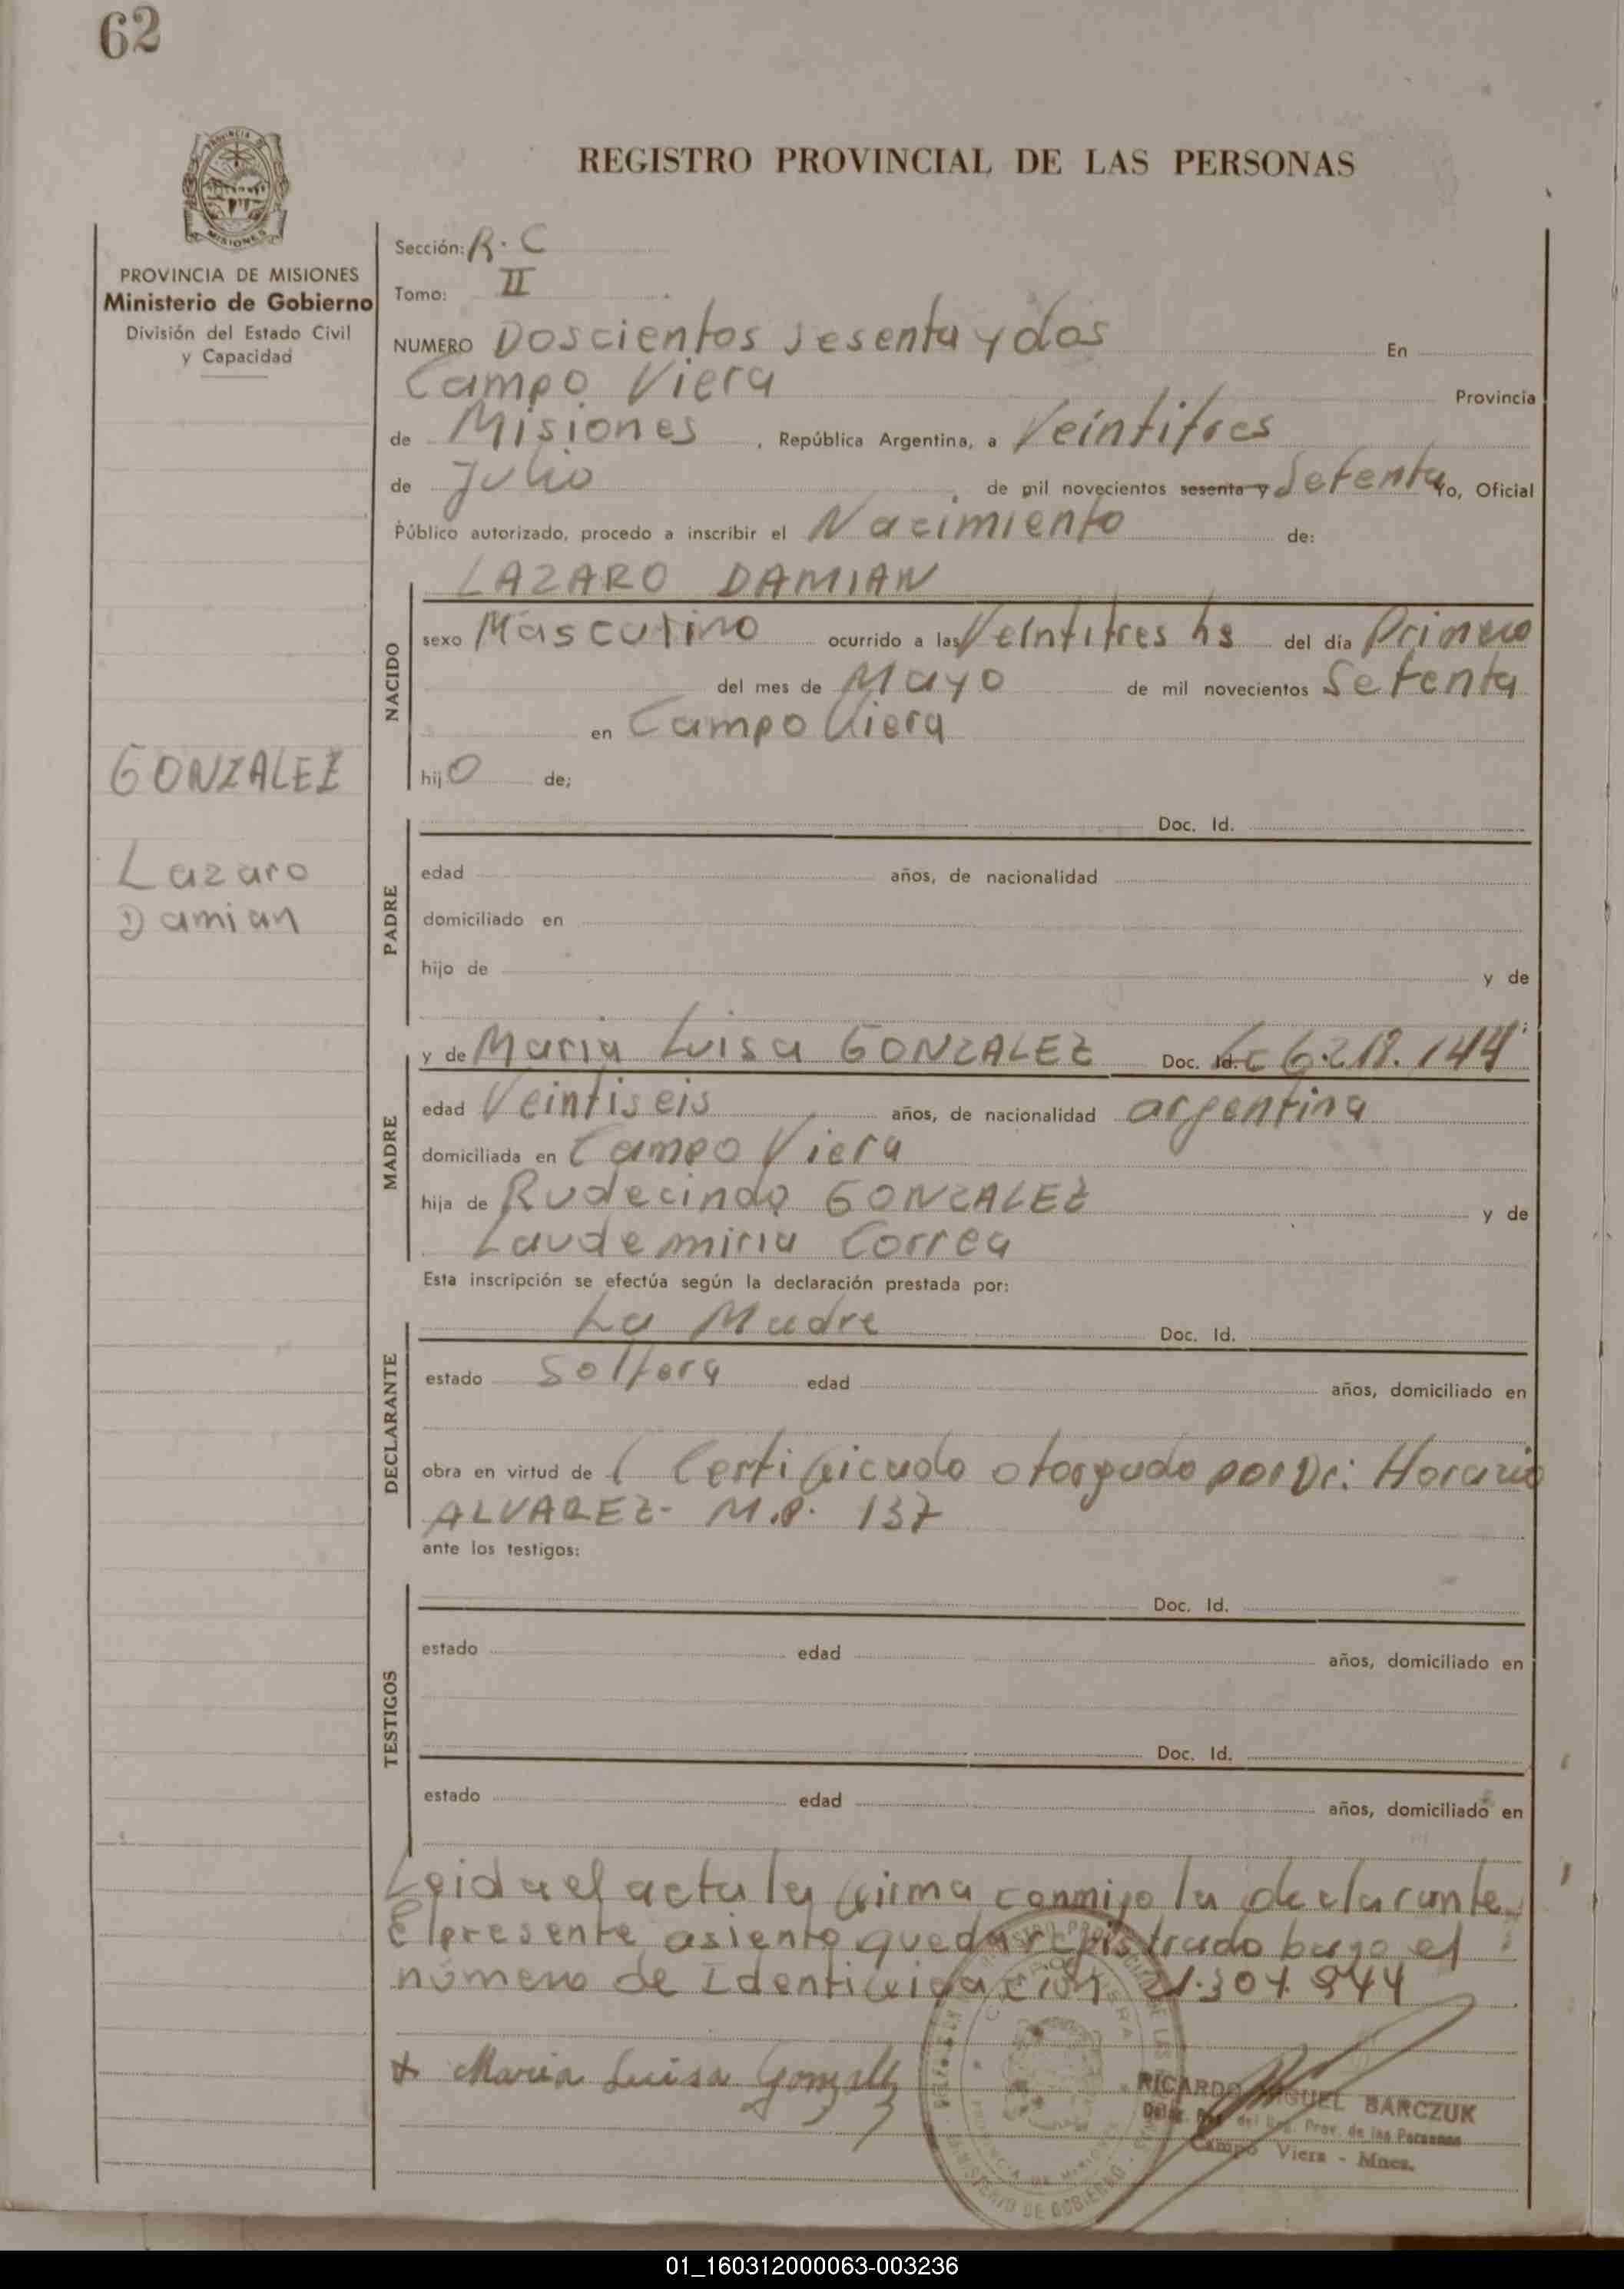 62
REGISTRO PROVINCIAL DE LAS PERSONAS
PROVINCIA DE MISIONES
Ministerio de Gobierno
División del Estado Civil
y Capacidad
Sección: R. C
Tomo: II
NUMERO Doscientos sesenta y dos En
Campo Viera Provincia
de Misiones, República Argentina, a Veintitres
de Julio, de mil novecientos sesenta y Setenta Yo, Oficial
Público autorizado, procedo a inscribir el Nacimiento de:
LAZARO DAMIAN
NACIDO
sexo Masculino ocurrido a las Veintitres hs del día Primero
del mes de Mayo de mil novecientos Setenta
en Campo Viera
hijo de;
GONZALEZ
Lazaro
Damian
PADRE
Doc. Id.
edad años, de nacionalidad
domiciliado en
hijo de y de
MADRE
y de Maria Luisa GONZALEZ Doc. Id. LC
edad Veintiseis años, de nacionalidad argentina
domiciliada en Campo Viera
hija de Rudecindo GONZALEZ y de
Laudemiria Correa
Esta inscripción se efectúa según la declaración prestada por:
DECLARANTE
La Madre Doc. Id.
estado Soltera edad años, domiciliado en
obra en virtud de Certificado otorgado por Dr: Horacio
ALVAREZ- M.P. 137
ante los testigos:
TESTIGOS
Doc. Id.
estado edad años, domiciliado en
Doc. Id.
estado edad años, domiciliado en
Leida el acta la firma conmigo la declarante.
El presente asiento queda registrado bajo el
número de Identificación 21.304.944
Maria Luisa Gonzalez
RICARDO MIGUEL BARCZUK
del Reg. Prov. de las Personas
Campo Viera - Mnes.
01_160312000063-003236